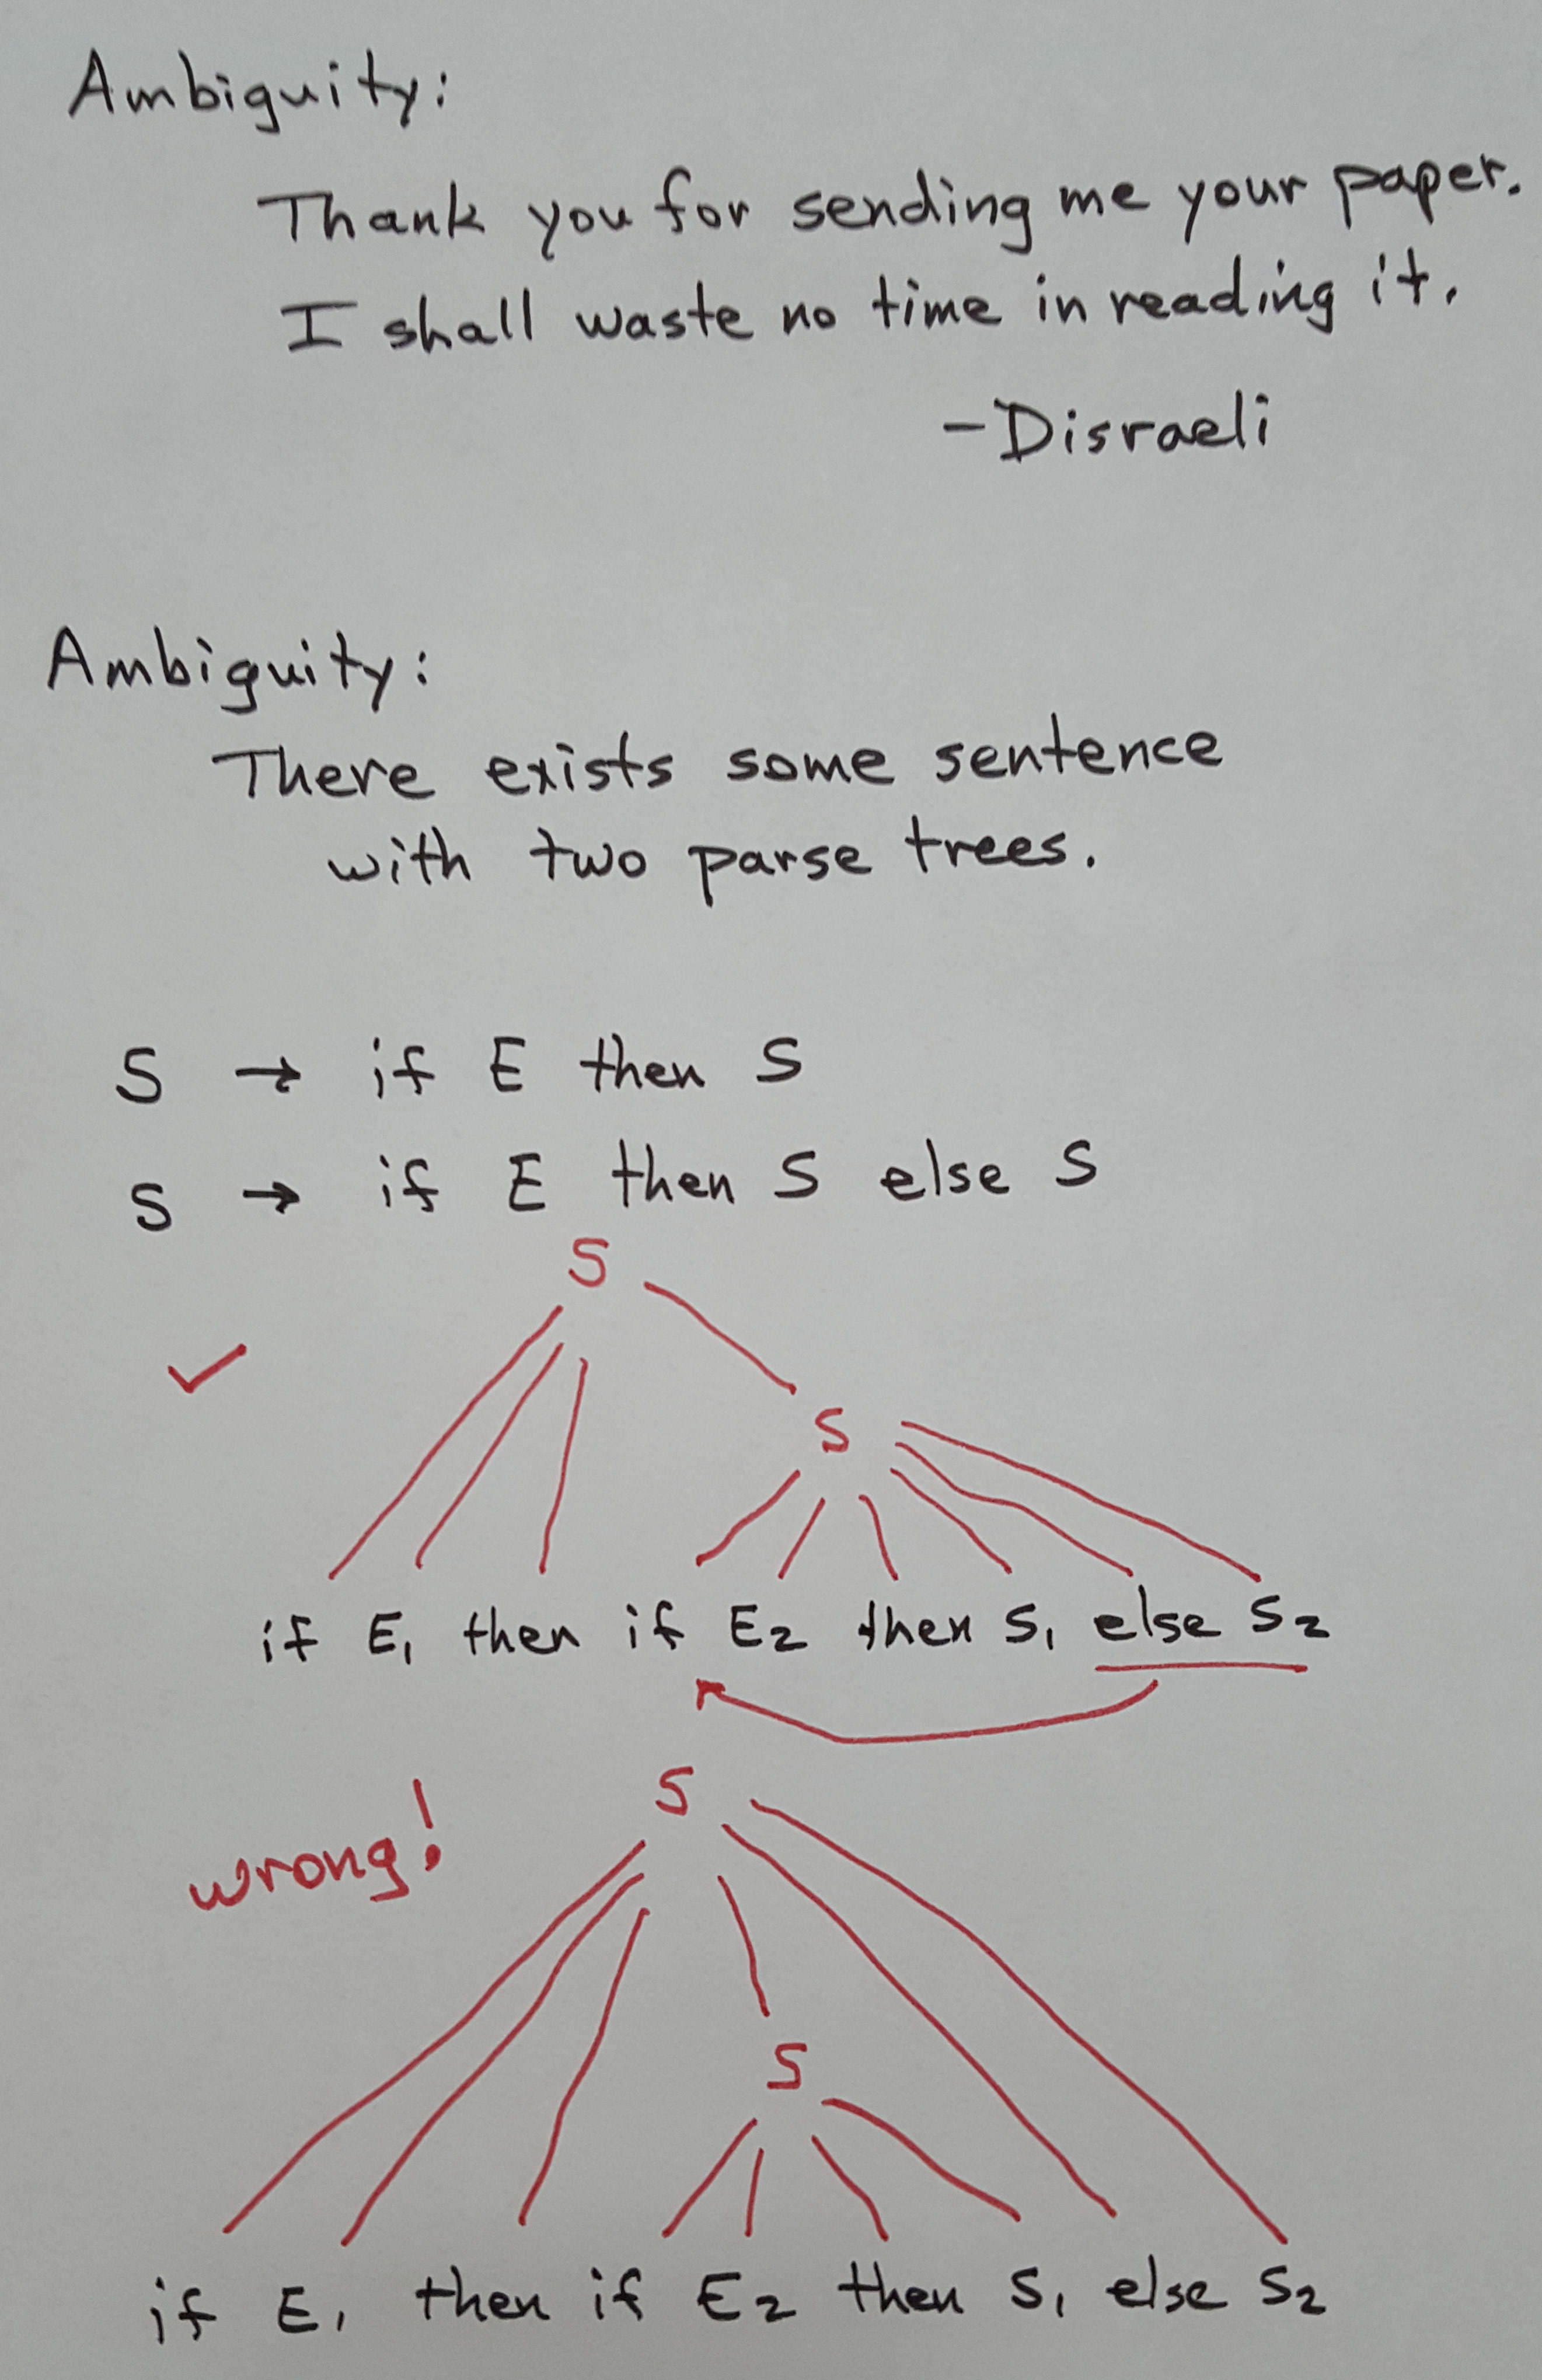 Ambiguity:
Thank you for sending me your paper.
I shall waste no time in reading it.
-Disraeli
Ambiguity:
There exists some sentence
with two parse trees.
S → if E then S
S → if E then S else S
S
S
if E₁ then if E₂ then S₁ else S₂
wrong!
S
S
if E₁ then if E₂ then S₁ else S₂